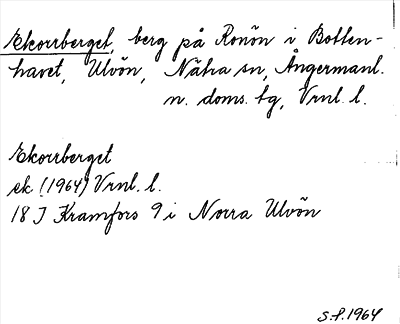 Ekorrberget, berg på Ronön i Botten-
havet, Ulvön, Nätra sn, Ångermanl.
n. doms. tg, Vrnl. l.
Ekorrberget
ek (1964) Vrnl. l.
18 J Kramfors 9 i Norra Ulvön
S.f. 1964